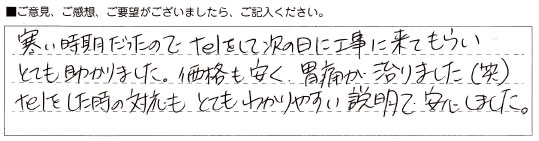 ■ご意見、ご感想、ご要望がございましたら、ご記入ください。
寒い時期だったので telをして次の日に工事に来てもらい
とても助かりました。価格も安く 胃痛が治りました(笑)
telをした時の対応も とてもわかりやすい説明で安心しました。